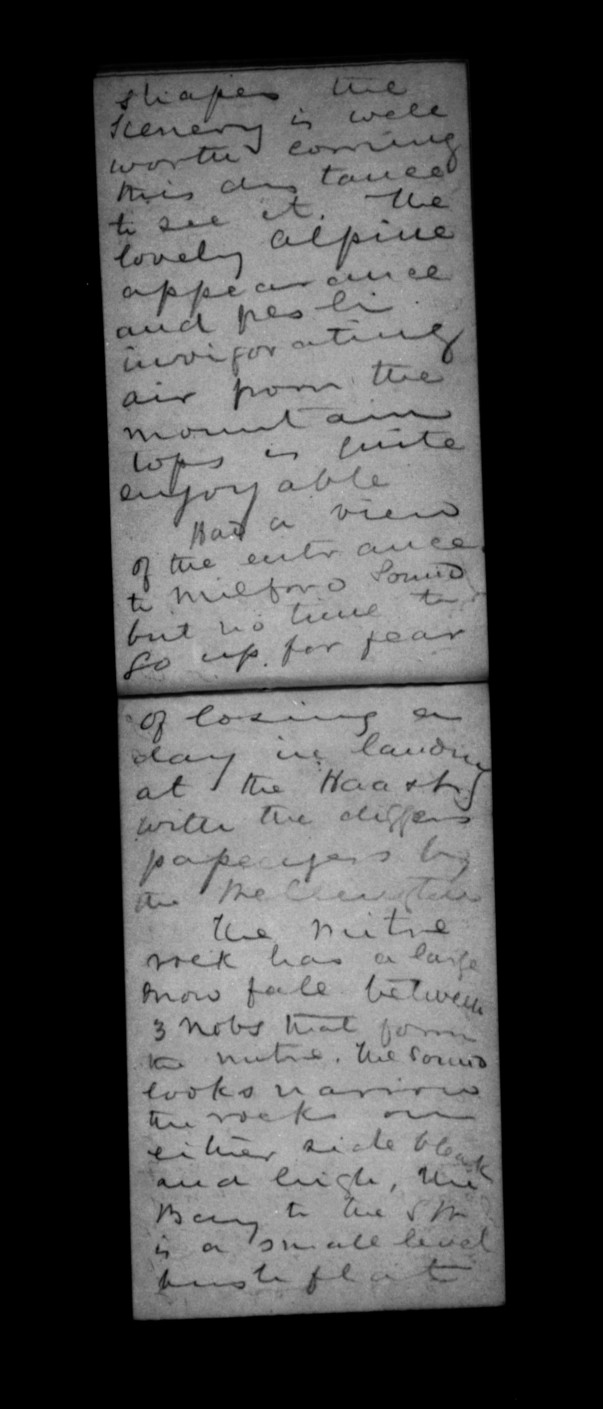 shapes the
scenery is well
worth coming
this distance
to see it. The
lovely alpine
appearance
and fresh
invigorating
air from the
mountain
tops is quite
enjoyable
Had a view
of the entrance
to Milford Sound
but no time to
go up. for fear
of losing a
day in landing
at the Haast
with the diggers
passengers by
the
The Mitre
rock has a large
snow fall between
3 nobs that form
the mitre. The Sound
looks narrow
the rocks on
either side bleak
and high, the
Bay to the SW
is a small level
bush flat